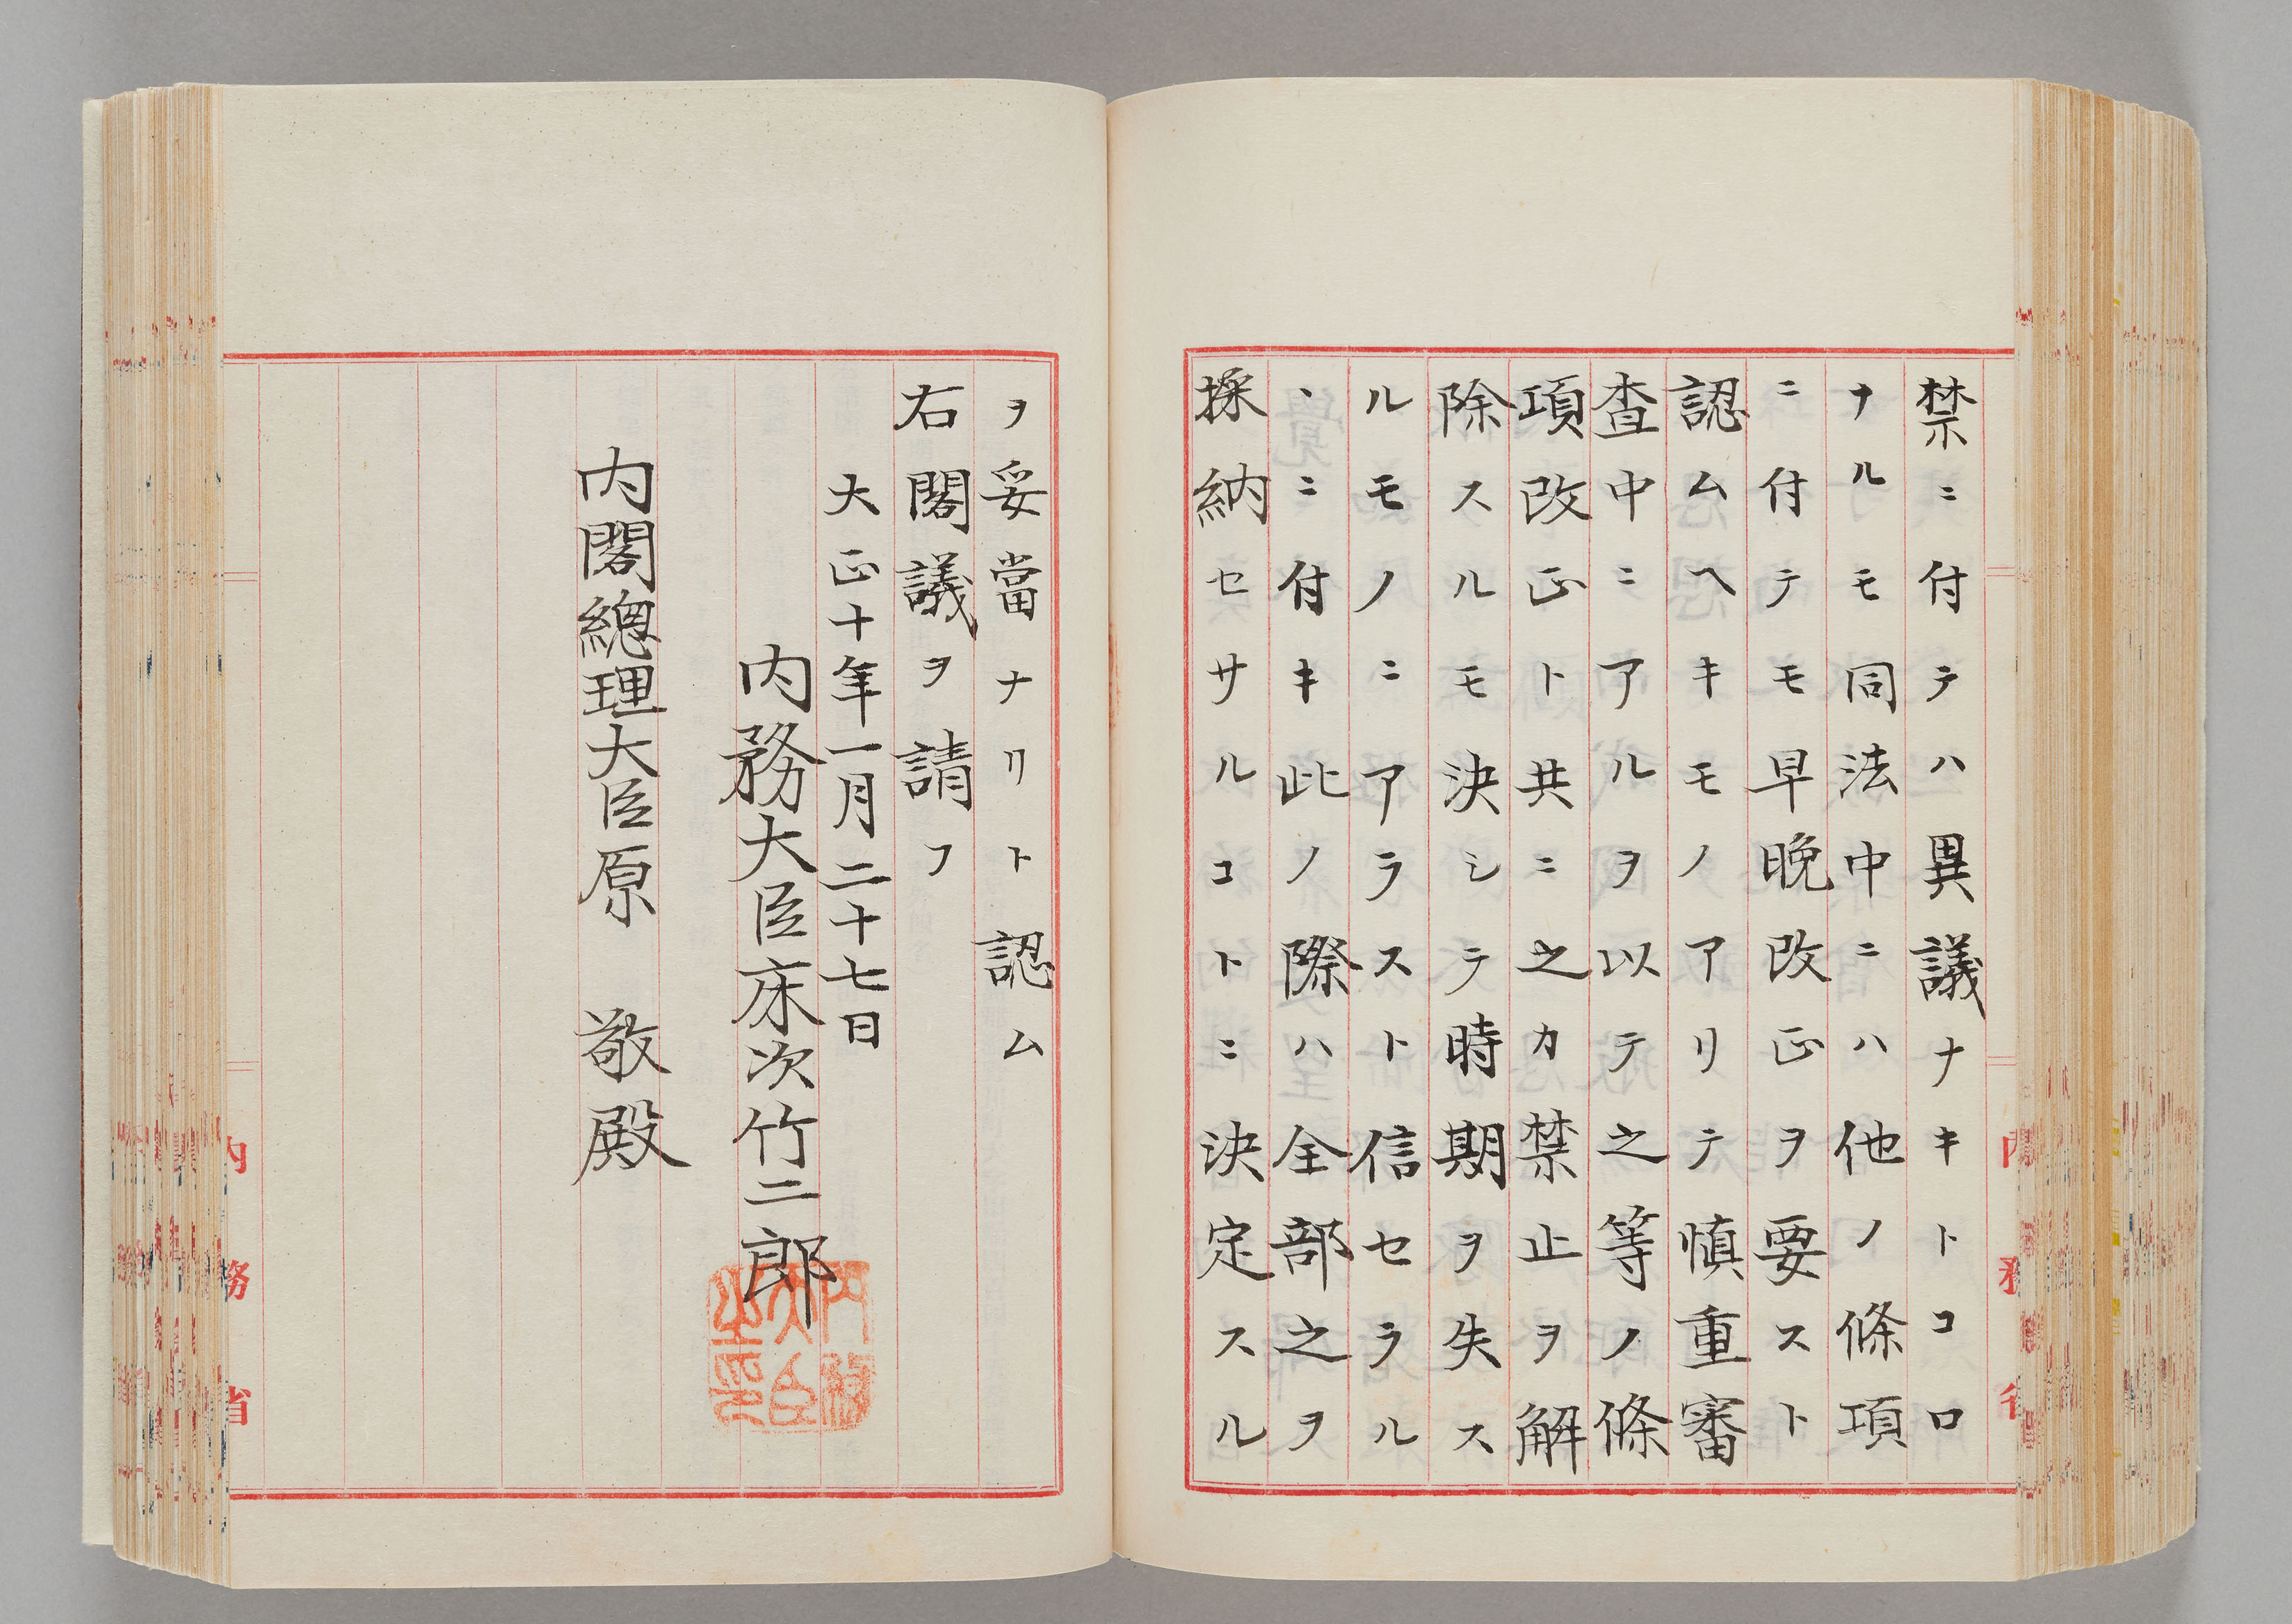 禁ニ付テハ異議ナキトコロ
ナルモ同法中ニハ他ノ條項
ニ付テモ早晩改正ヲ要スト
認ムヘキモノアリテ慎重審
査中ニアルヲ以テ之等ノ條
項改正ト共ニ之カ禁止ヲ解
除スルモ決シテ時期ヲ失ス
ルモノニアラスト信セラル
、ニ付キ此ノ際ハ全部之ヲ
採納セサルコトニ決定スル
ヲ妥當ナリト認ム
右閣議ヲ請フ
大正十年一月二十七日
内務大臣床次竹二郎
内務大臣之印
内閣總理大臣原敬殿
内務省